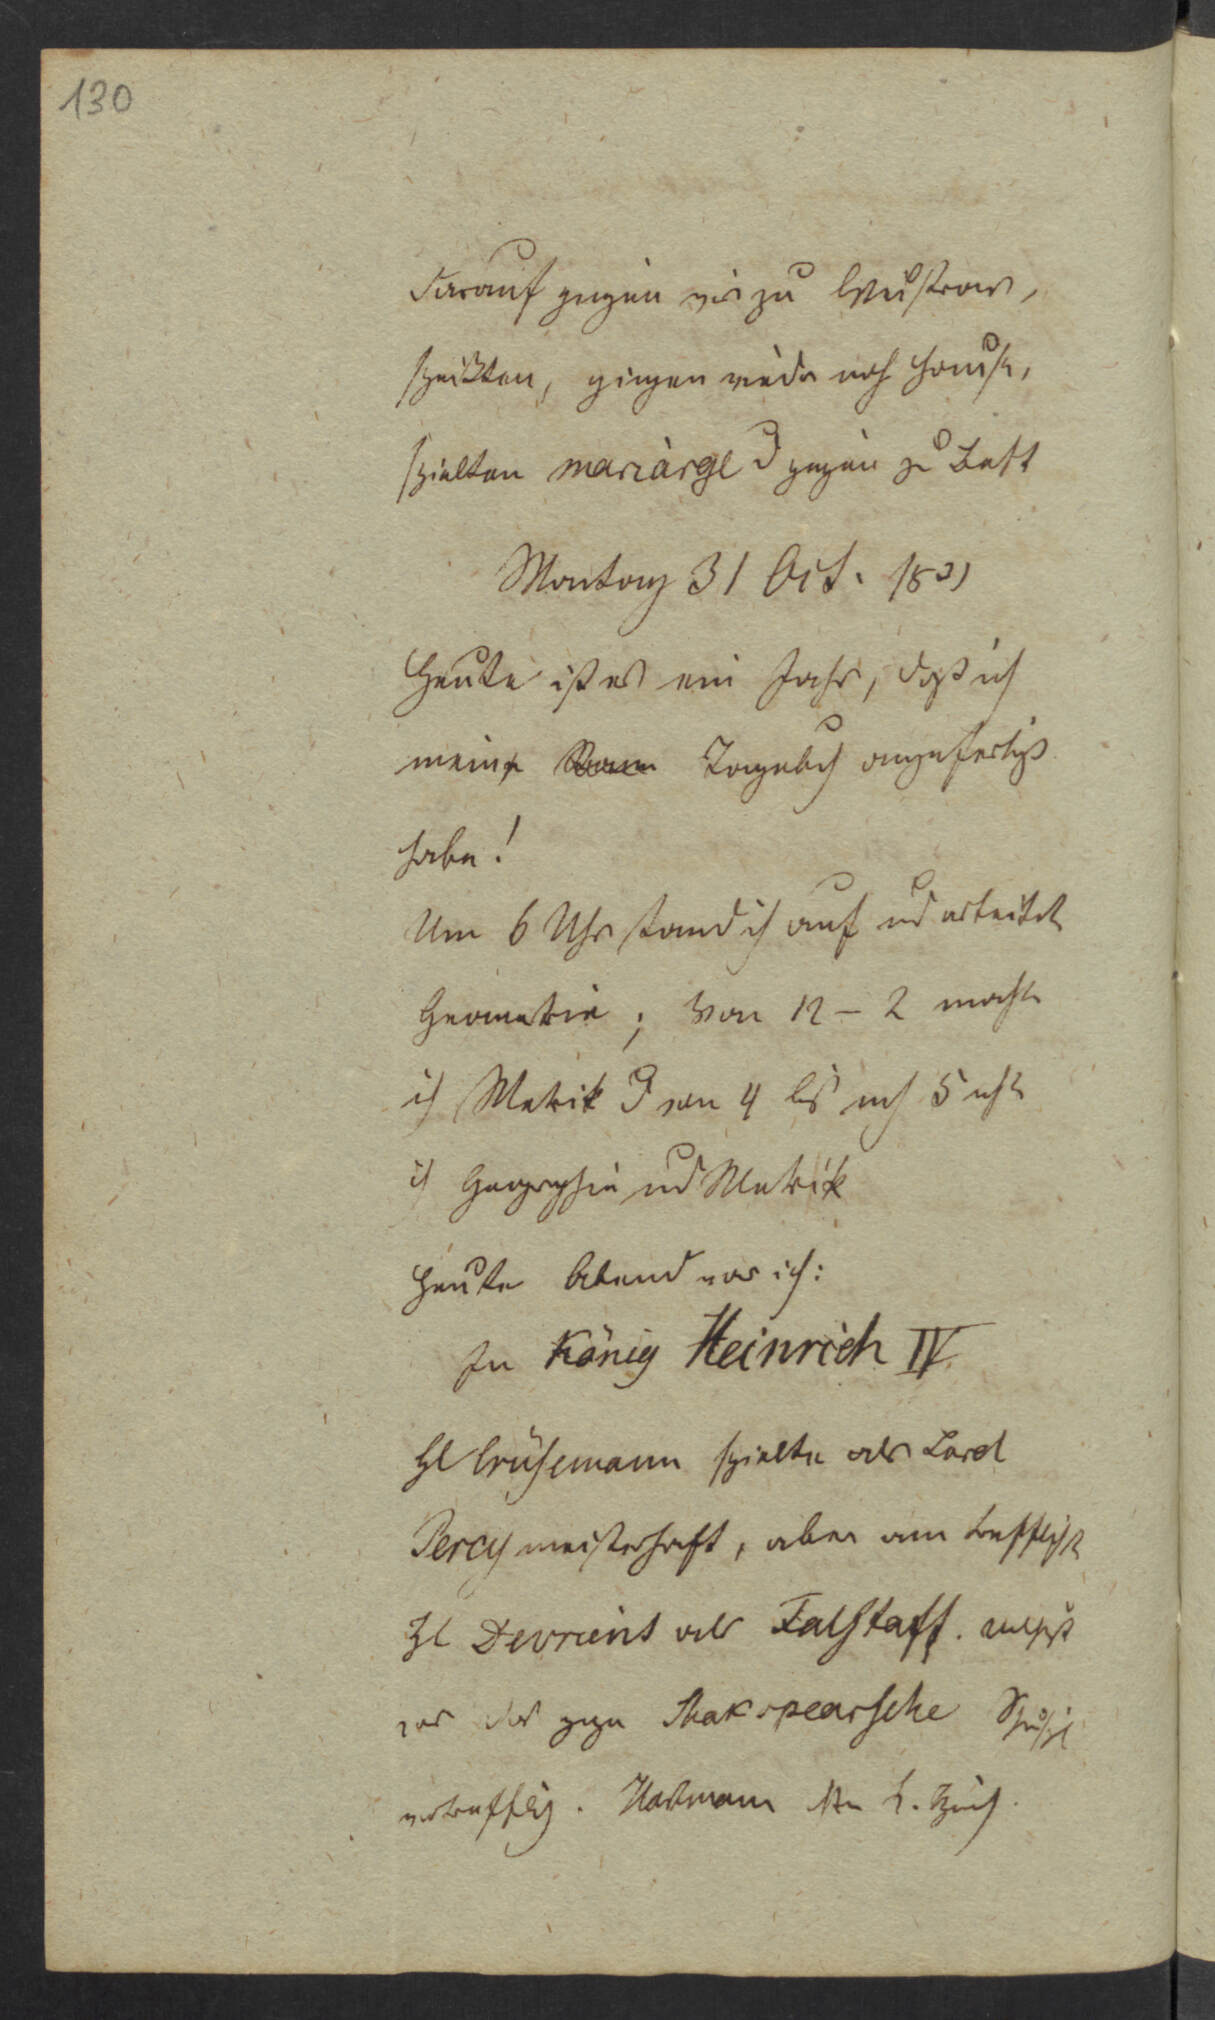 130
darauf gingen wir zu Wustrow,
speißten, gingen wieder nach Hause,
spielten mariarge u gingen zu Bett
Montag 31 Oct. 1831
Heute ist es ein Jahr, daß ich
mein Tagebuch angefertigt
habe!
Um 6 Uhr stand ich auf und arbeitete
Geometrie; von 12 – 2 machte
ich Metrik u von 4 bis nach 5 Uhr
ich Geographie und Metrik
Heute Abend war ich:
In König Heinrich IV.
H Crüsemann spielte als Lord
Percy meisterhaft, aber am trefflichsten
H Devrient als Falstaff.
war das ganze Shakspearsche
vortrefflich.